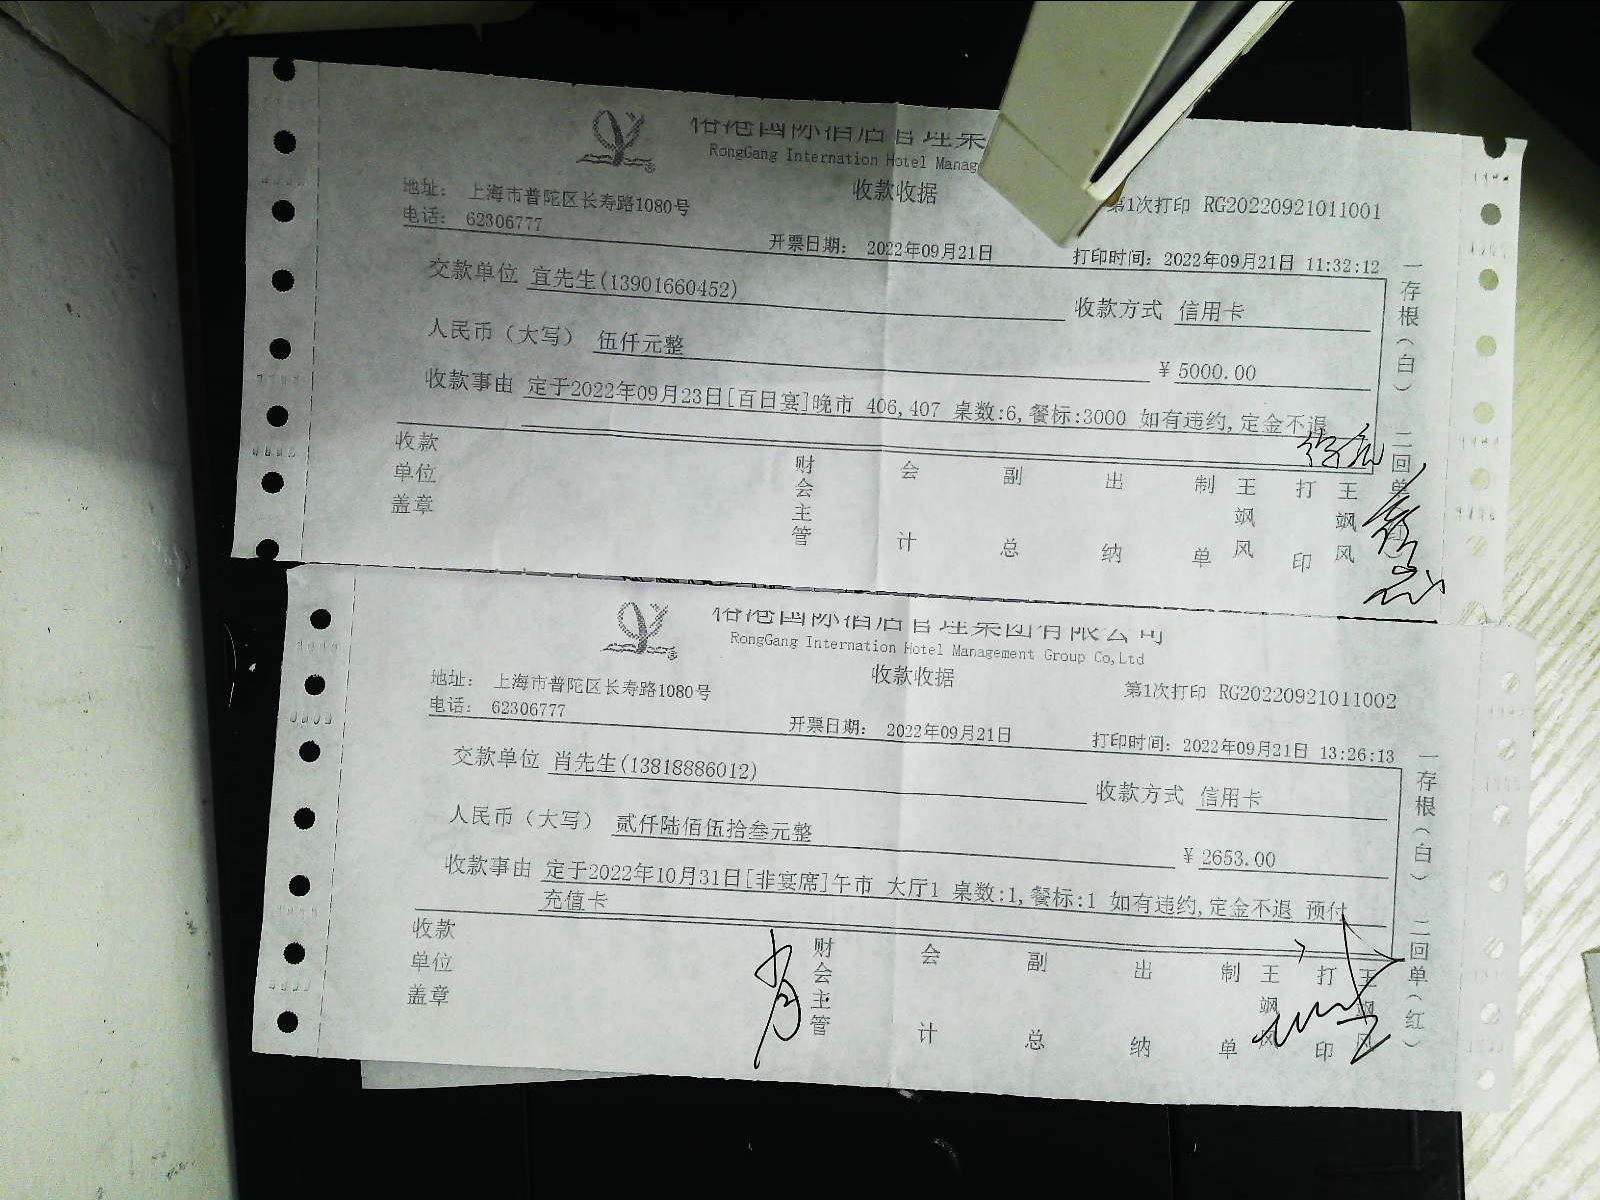 裕港国际酒店管理集
RongGang Internation Hotel Manag
收款收据
地址： 上海市普陀区长寿路1080号
第1次打印 RG20220921011001
电话： 62306777
开票日期： 2022年09月21日
打印时间：2022年09月21日 11:32:12
交款单位 宜先生(13901660452)
收款方式 信用卡
人民币（大写） 伍仟元整
￥5000.00
收款事由 定于2022年09月23日[百日宴]晚市 406,407 桌数:6,餐标:3000 如有违约,定金不退
收款单位盖章
财会主管
会计
副总
出纳
制单 王飒风
打印 王飒风
一存根(白) 二回单
裕港国际酒店管理集团有限公司
RongGang Internation Hotel Management Group Co,Ltd
收款收据
地址： 上海市普陀区长寿路1080号
第1次打印 RG20220921011002
电话： 62306777
开票日期： 2022年09月21日
打印时间：2022年09月21日 13:26:13
交款单位 肖先生(13818886012)
收款方式 信用卡
人民币（大写） 贰仟陆佰伍拾叁元整
￥2653.00
收款事由 定于2022年10月31日[非宴席]午市 大厅1 桌数:1,餐标:1 如有违约,定金不退 预付
充值卡
收款单位盖章
肖
财会主管
会计
副总
出纳
制单 王飒风
打印 王飒风
一存根(白) 二回单(红)